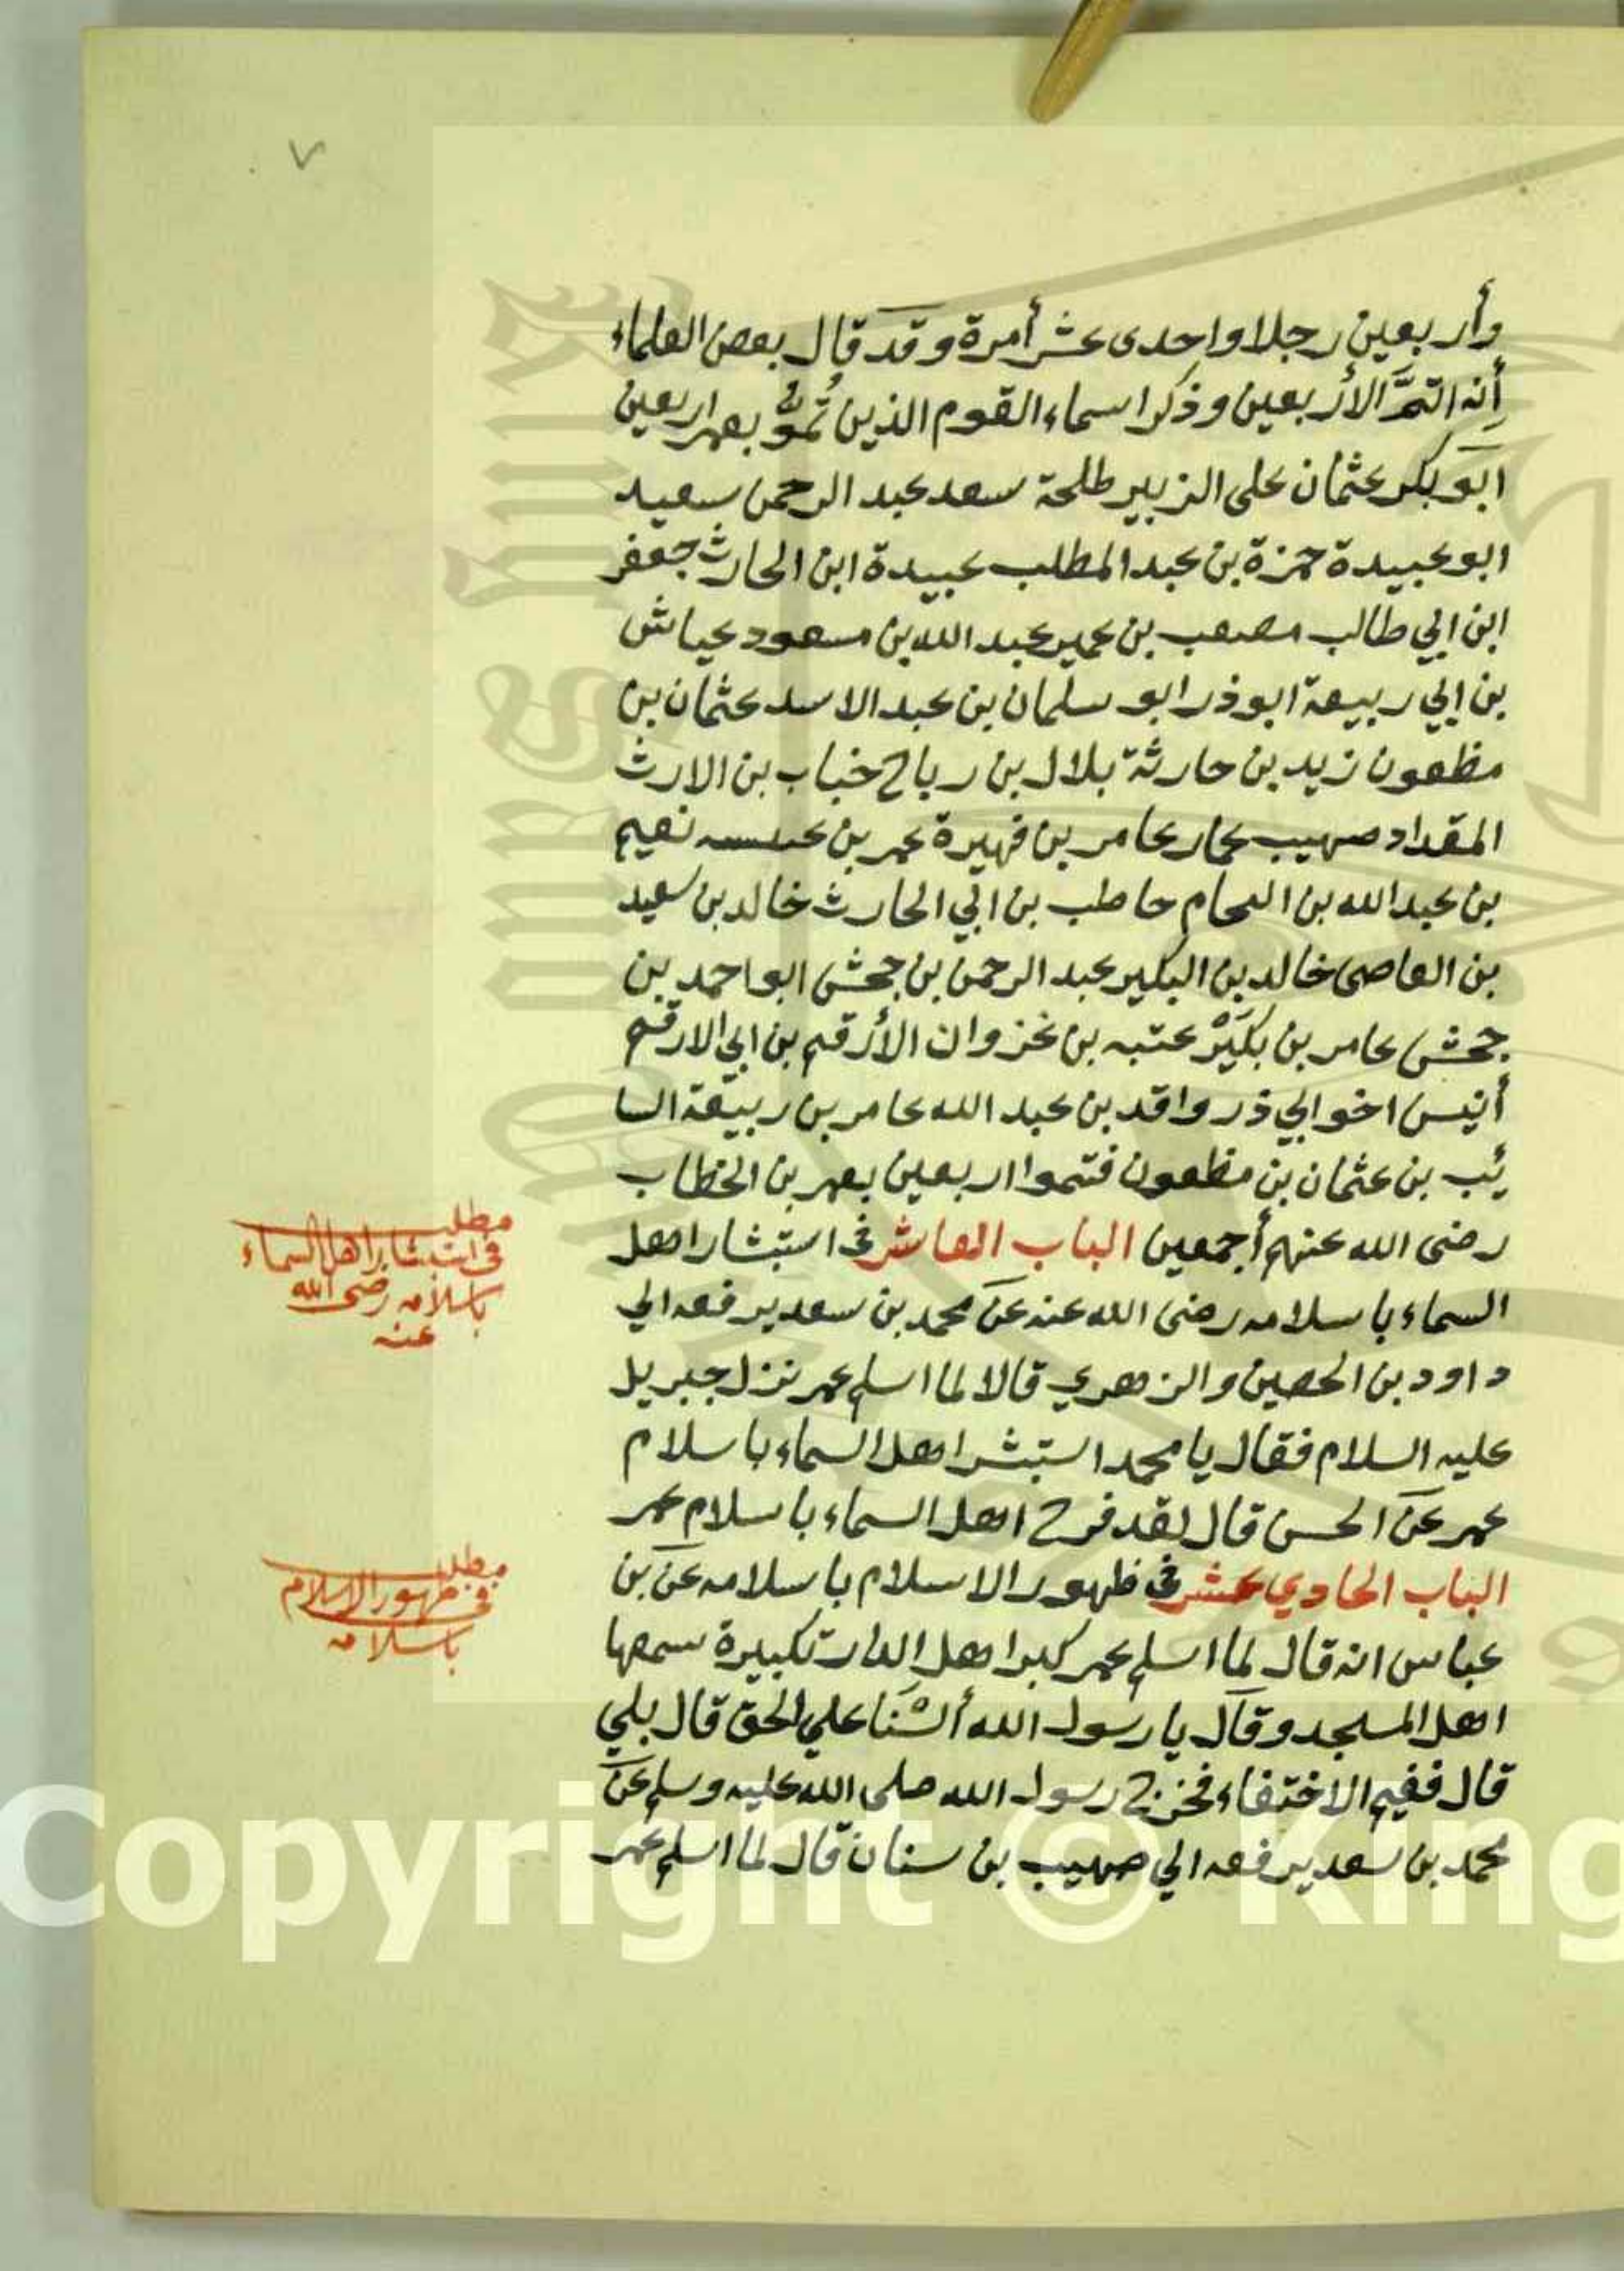 ٧
وأربعين رجلا واحدى عشر أمرة وقد قال بعض العلماء
أنه اتمَّ الأربعين وذكر اسماء القوم الذين تُمُّوْ بعمر اربعين
ابو بكر عثمان على الزبير طلحة سعد عبد الرحمن سعيد
ابو عبيدة حمزة بن عبد المطلب عبيدة ابن الحارث جعفر
ابن ابي طالب مصعب بن عمير عبد الله بن مسعود عياش
بن ابي ربيعة ابو ذر ابو سلمان بن عبد الاسد عثمان بن
مظعون زيد بن حارثة بلال بن رباح خباب بن الارث
المقداد صهيب عمار عامر بن فهيرة عمر بن عبسه نعيم
بن عبد الله بن النحام حاطب بن ابي الحارث خالد بن سعيد
بن العاصى خالد بن البكير عبد الرحمن بن جحش ابو احمد بن
جحش عامر بن بكَيْر عتبه بن غزوان الأرقم بن ابي الارقم
أنيس اخو ابي ذر واقد بن عبد الله عامر بن ربيعة السا
ئب بن عثمان بن مظعون فتموا اربعين بعمر بن الخطاب
رضى الله عنهم أجمعين الباب العاشر فى استبشار اهل
السماء باسلامه رضى الله عنه عن محمد بن سعد يرفعه الي
داود بن الحصين والزهري قالا لما اسلم عمر نزل جبريل
عليه السلام فقال يا محمد استبشر اهل السماء باسلام
عمر عن الحسن قال لقد فرح اهل السماء باسلام عمر
الباب الحادي عشر فى ظهور الاسلام باسلامه عن بن
عباس انه قال لما اسلم عمر كبر اهل الدار تكبيرة سمعها
اهل المسجد وقال يا رسول الله ألسْنَا علي الحق قال بلي
قال ففيم الاختفاء فخرج رسول الله صلى الله عليه وسلم عن
محمد بن سعد يرفعه الي صهيب بن سنان قال لما اسلم عمر
مطلب
فى استبشار اهل السماء
باسلامه رضى الله
عنه
مطلب
فى ظهور الاسلام
باسلامه
Copyright © King